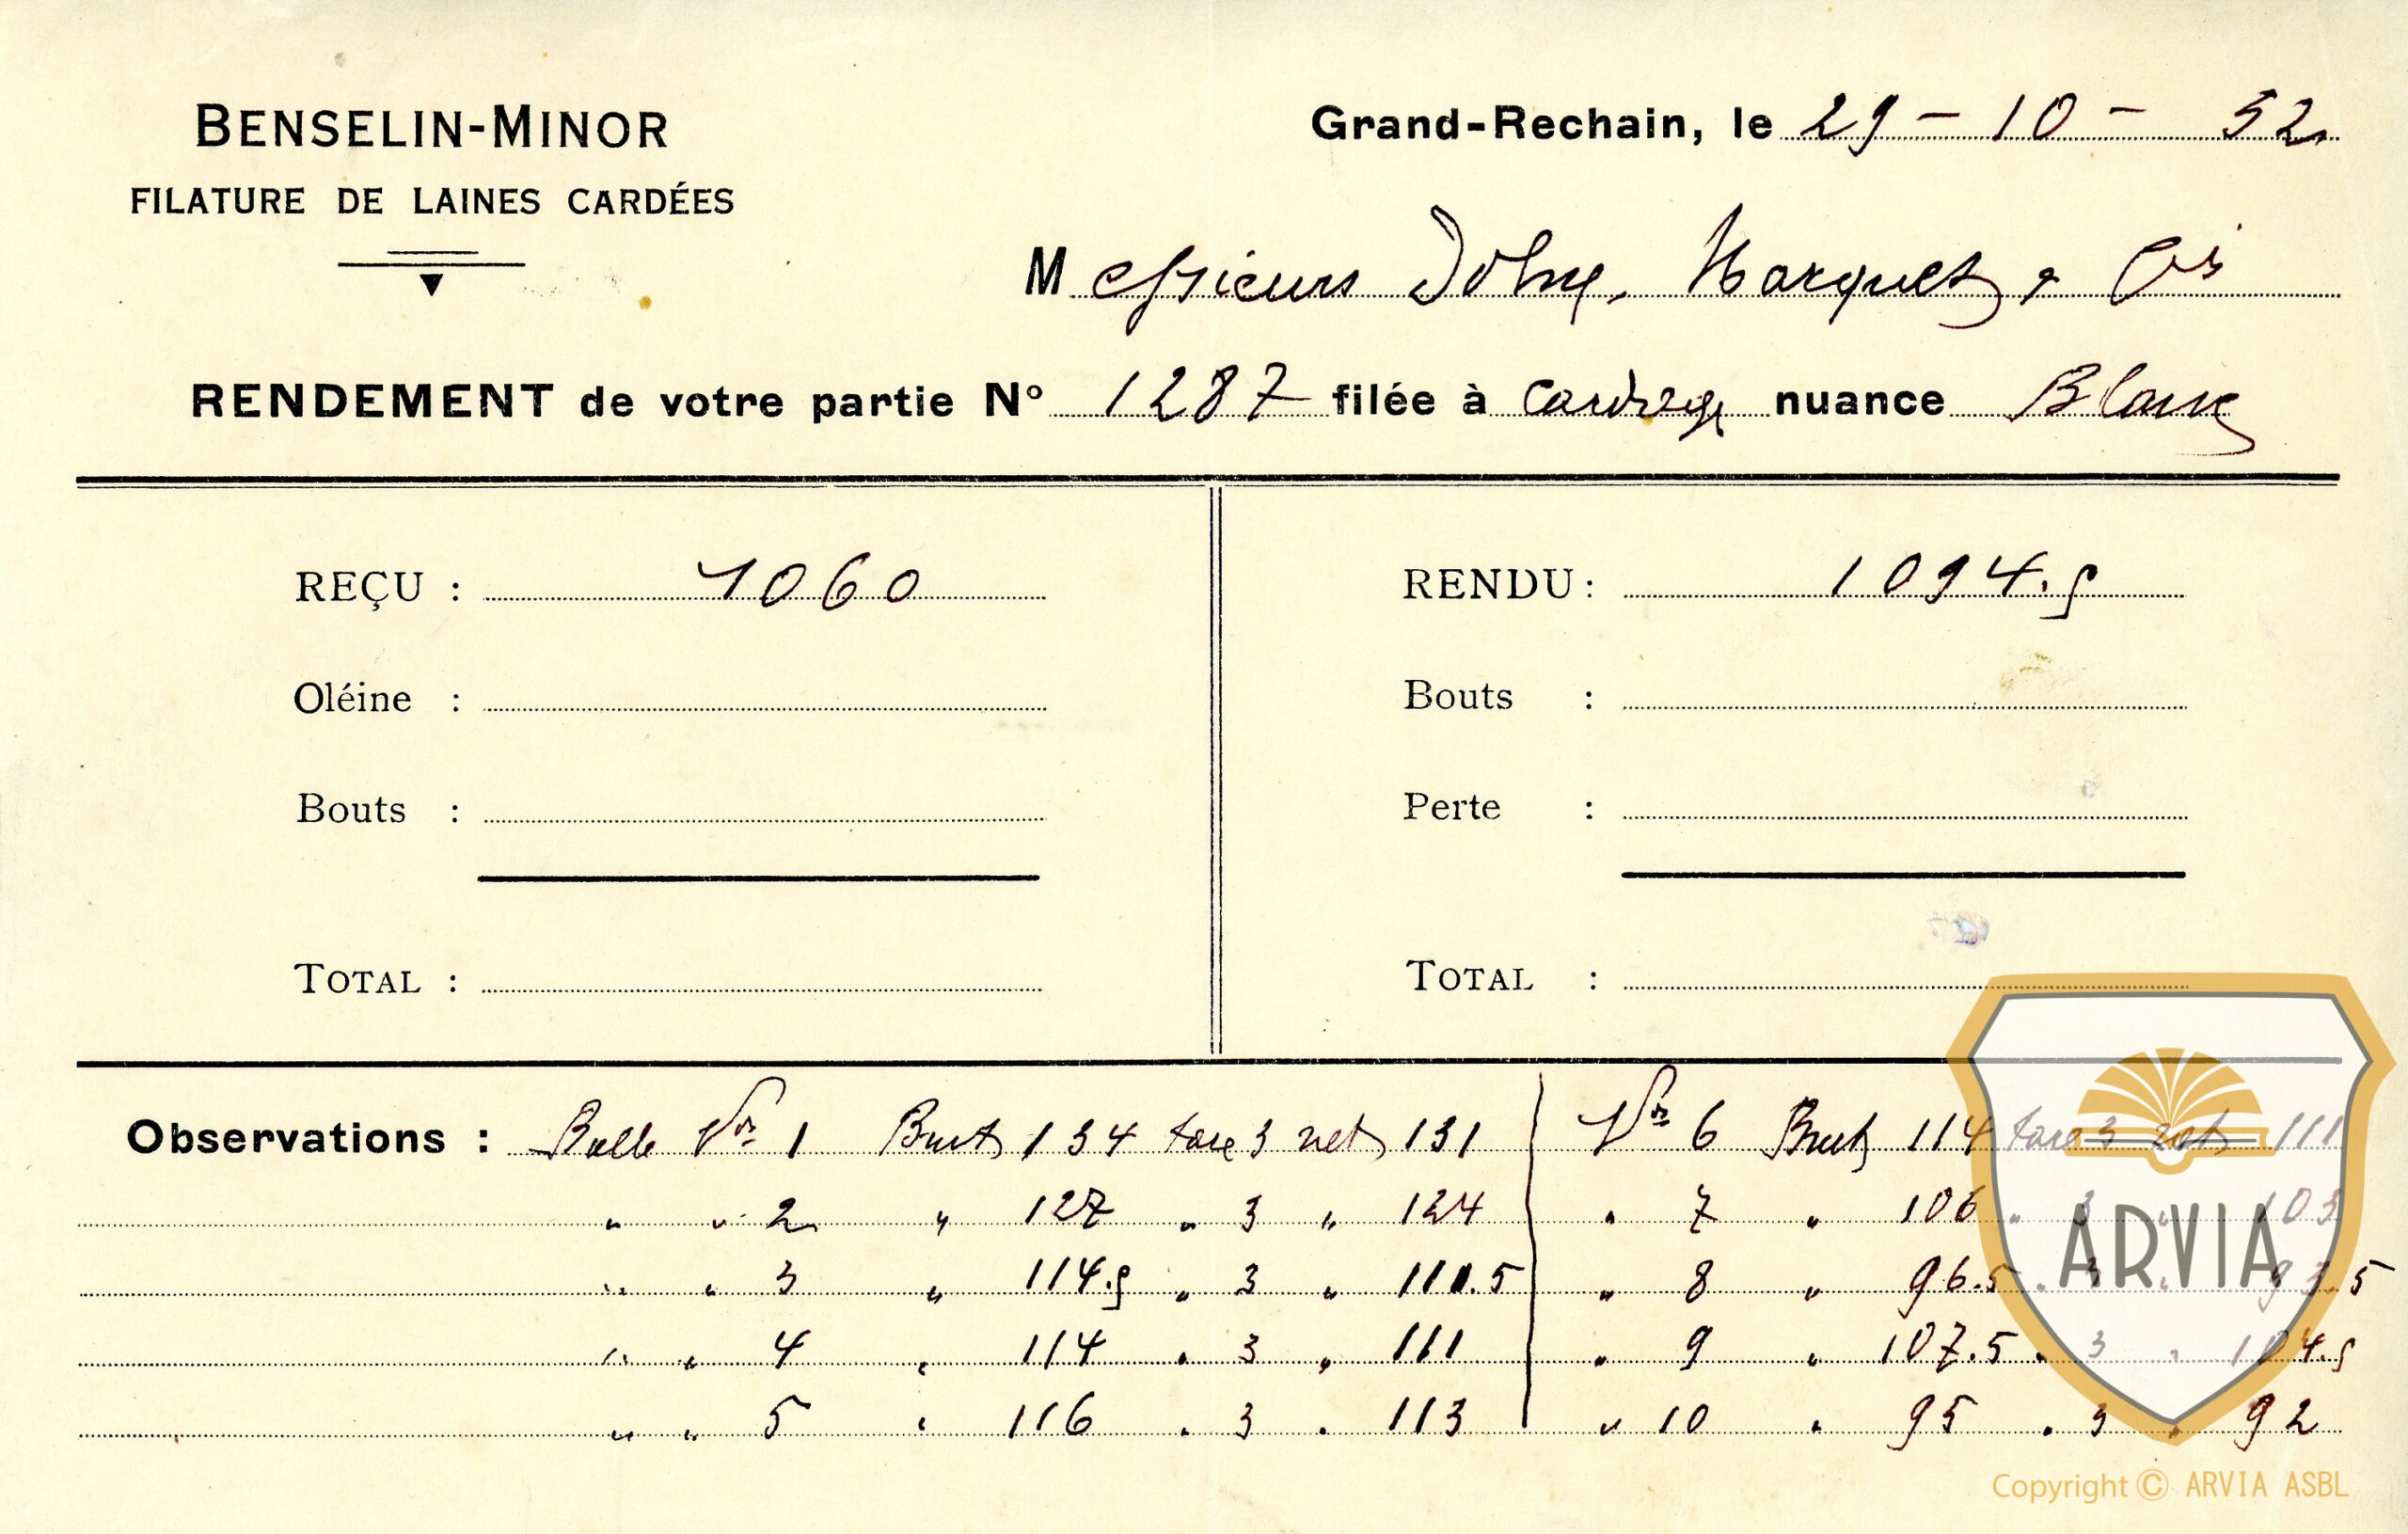 BENSELIN-MINOR
FILATURE DE LAINES CARDÉES
Grand-Rechain, le 29 - 10 - 52
Messieurs Marquet & Cie
RENDEMENT de votre partie N° 1287 filée à cardage nuance Blanc
REÇU : 1060
Oléine :
Bouts :
TOTAL :
RENDU : 1094.5
Bouts :
Perte :
TOTAL :
Observations : Balle Nº 1 Brut 134 tare 3 net 131 Nº 6 Brut 114 tare 3 net 111
" " 2 " 127 " 3 " 124 " 7 " 106 " 3 " 103
" " 3 " 114.5 " 3 " 111.5 " 8 " 96.5 " 3 " 93.5
" " 4 " 114 " 3 " 111 " 9 " 107.5 " 3 " 104.5
" " 5 " 116 " 3 " 113 " 10 " 95 " 3 " 92
ARVIA
Copyright © ARVIA ASBL